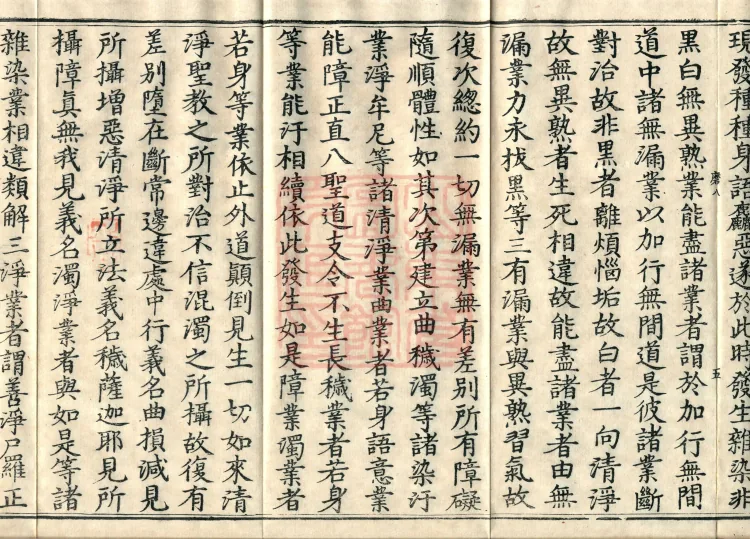 現發種種身語麤惡遂於此時發生雜染非
五
黑白無異熟業能盡諸業者謂於加行無間
道中諸無漏業以加行無間道是彼諸業斷
對治故非黑者離煩惱垢故白者一向清淨
故無異熟者生死相違故能盡諸業者由無
漏業力永拔黑等三有漏業與異熟習氣故
復次總約一切無漏業無有差別所有障礙
隨順體性如其次第建立曲穢濁等諸染汙
業淨牟尼等諸清淨業曲業者若身語意業
能障正直八聖道支令不生長穢業者若身
等業能汙相續依此發生如是障業濁業者
若身等業依止外道顛倒見生一切如來清
淨聖教之所對治不信混濁之所攝故復有
差別墮在斷常邊違處中行義名曲損減見
所攝增惡清淨所立法義名穢薩迦耶見所
攝障眞無我見義名濁淨業者與如是等諸
雜染業相違類解三淨業者謂善淨尸羅正